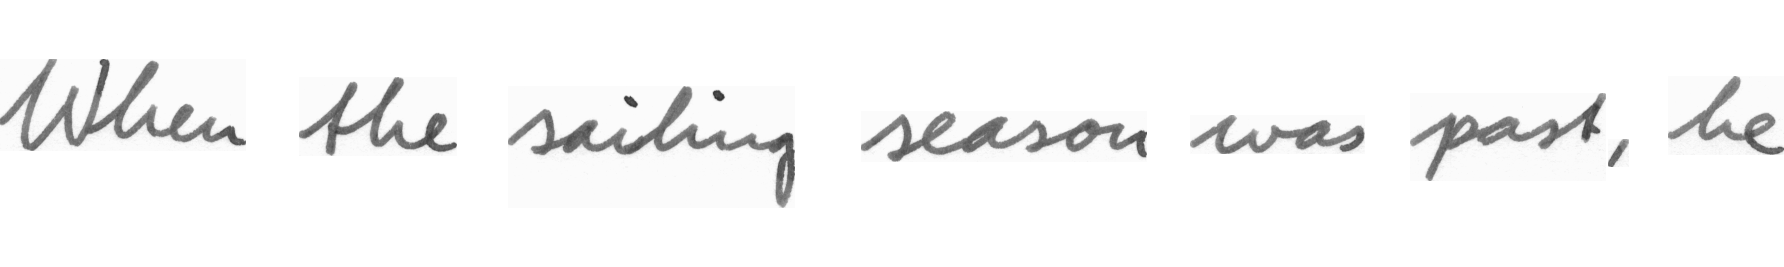 When the sailing season was past, he